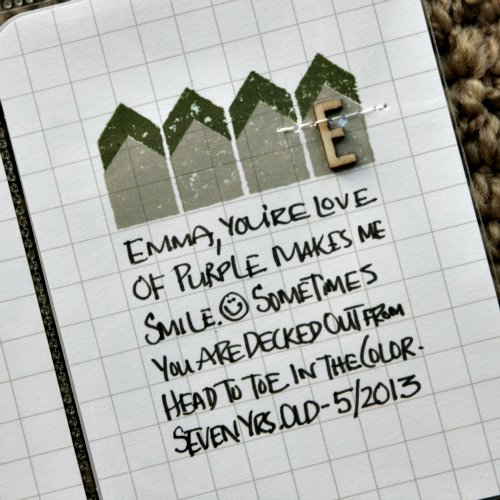 E
EMMA, YOU'RE LOVE
OF PURPLE MAKES ME
SMILE. ☺ SOMETIMES
YOU ARE DECKED OUT FROM
HEAD TO TOE IN THE COLOR.
SEVEN YRS. OLD - 5/2013